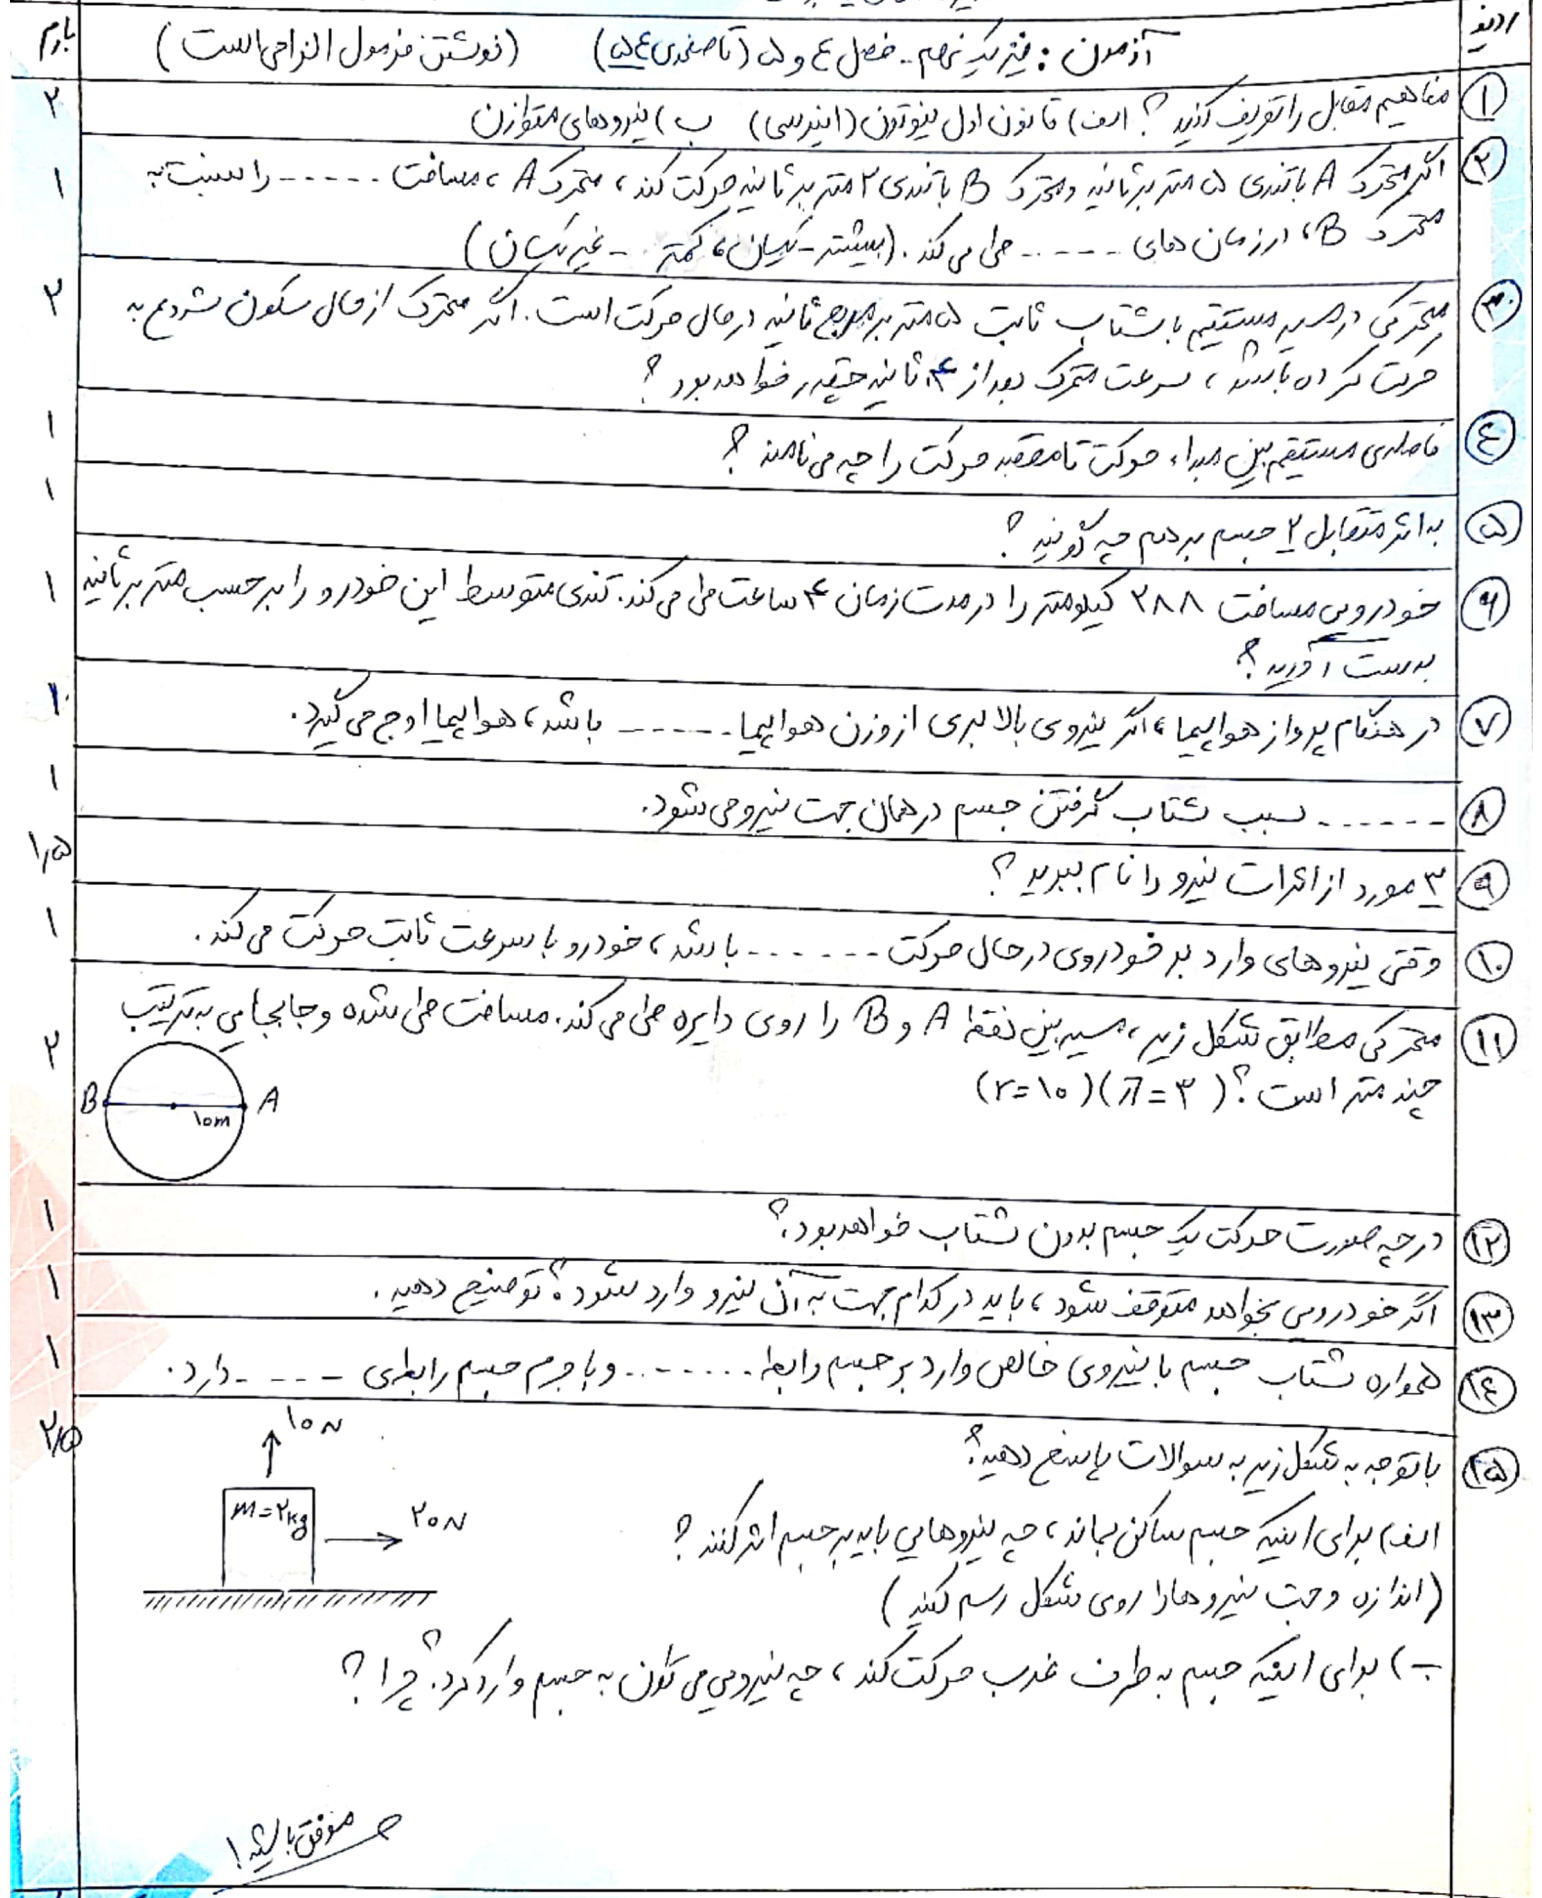 ردیف
بارم
آزمون: فیزیک نهم - فصل ٤ و ۵ (تا صفحه‌ی ۵٤) (نوشتن فرمول الزامی است)
① مفاهیم مقابل را تعریف کنید؟ الف) قانون اول نیوتون (اینرسی) ب) نیروهای متوازن ۲
② اگر متحرک A با تندی ۵ متر بر ثانیه و متحرک B با تندی ۲ متر بر ثانیه حرکت کند، متحرک A، مسافت ------ را نسبت به ۱
متحرک B، در زمان های ------ طی می کند. (بیشتر - یکسان، کمتر - غیر یکسان)
③ متحرکی در مسیر مستقیم با شتاب ثابت ۵ متر بر مربع ثانیه در حال حرکت است. اگر متحرک از حال سکون شروع به ۲
حرکت کرده باشد، سرعت متحرک بعد از ۴ ثانیه چقدر خواهد بود؟
④ فاصله‌ی مستقیم بین مبداء حرکت تا مقصد حرکت را چه می نامند؟ ۱
⑤ به اثر متقابل ۲ جسم بر هم چه گویند؟ ۱
⑥ خودرویی مسافت ۲۸۸ کیلومتر را در مدت زمان ۴ ساعت طی می کند. تندی متوسط این خودرو را بر حسب متر بر ثانیه ۱
بدست آورید؟
⑦ در هنگام پرواز هواپیما، اگر نیروی بالابری از وزن هواپیما ------ باشد، هواپیما اوج می گیرد. ۱
⑧ ------ سبب شتاب گرفتن جسم در همان جهت نیرو می شود. ۱
⑨ ۳ مورد از اثرات نیرو را نام ببرید؟ ۱٫۵
⑩ وقتی نیروهای وارد بر خودروی در حال حرکت ------ باشد، خودرو با سرعت ثابت حرکت می کند. ۱
⑪ متحرکی مطابق شکل زیر، مسیر بین نقطه A و B را روی دایره طی می کند. مسافت طی شده و جابجایی به ترتیب ۲
چند متر است؟ (π=۳) (r=۱۰)
B ۱۰m A
⑫ در چه صورت حرکت یک جسم بدون شتاب خواهد بود؟ ۱
⑬ اگر خودرویی بخواهد متوقف شود، باید در کدام جهت به آن نیرو وارد شود؟ توضیح دهید. ۱
⑭ همواره شتاب جسم با نیروی خالص وارد بر جسم رابطه ------ و با جرم جسم رابطه‌ی ---- دارد. ۱
⑮ با توجه به شکل زیر به سوالات پاسخ دهید؟ ۲٫۵
۱۰N
m=۲kg
۲۰N
الف) برای اینکه جسم ساکن بماند، چه نیروهایی باید بر جسم اثر کنند؟
(اندازه و جهت نیروها را روی شکل رسم کنید)
ب) برای اینکه جسم به طرف غرب حرکت کند، چه نیرویی می توان به جسم وارد کرد؟ چرا؟
موفق باشید!